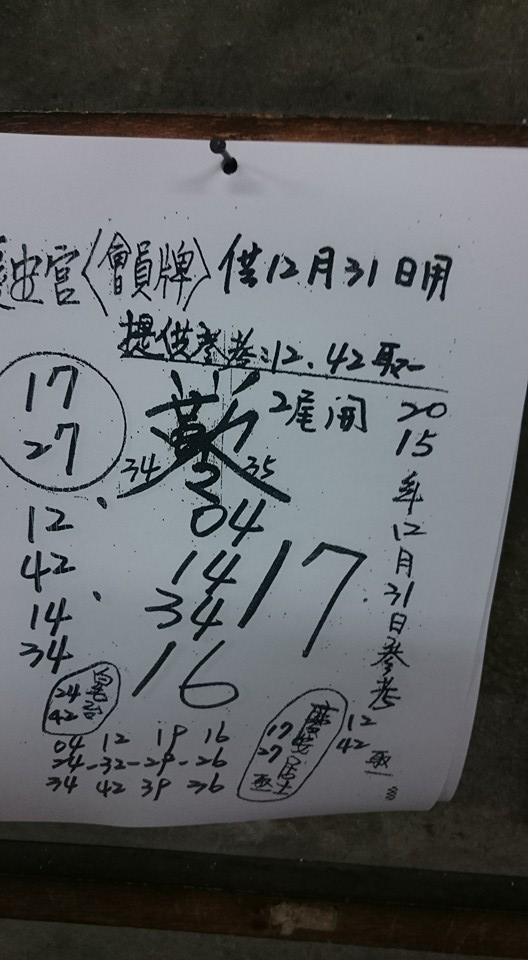 安宮〈會員牌〉供12月31日用
提供參考:12、42取一
17
27
2尾開
34 2 35
12
42
14
34
04
14
34
17
16
2015年12月31日參考
24
42
04 12 19 16
24-32-29-26
34 42 39 36
17
27
取一
居士
12
42
取一